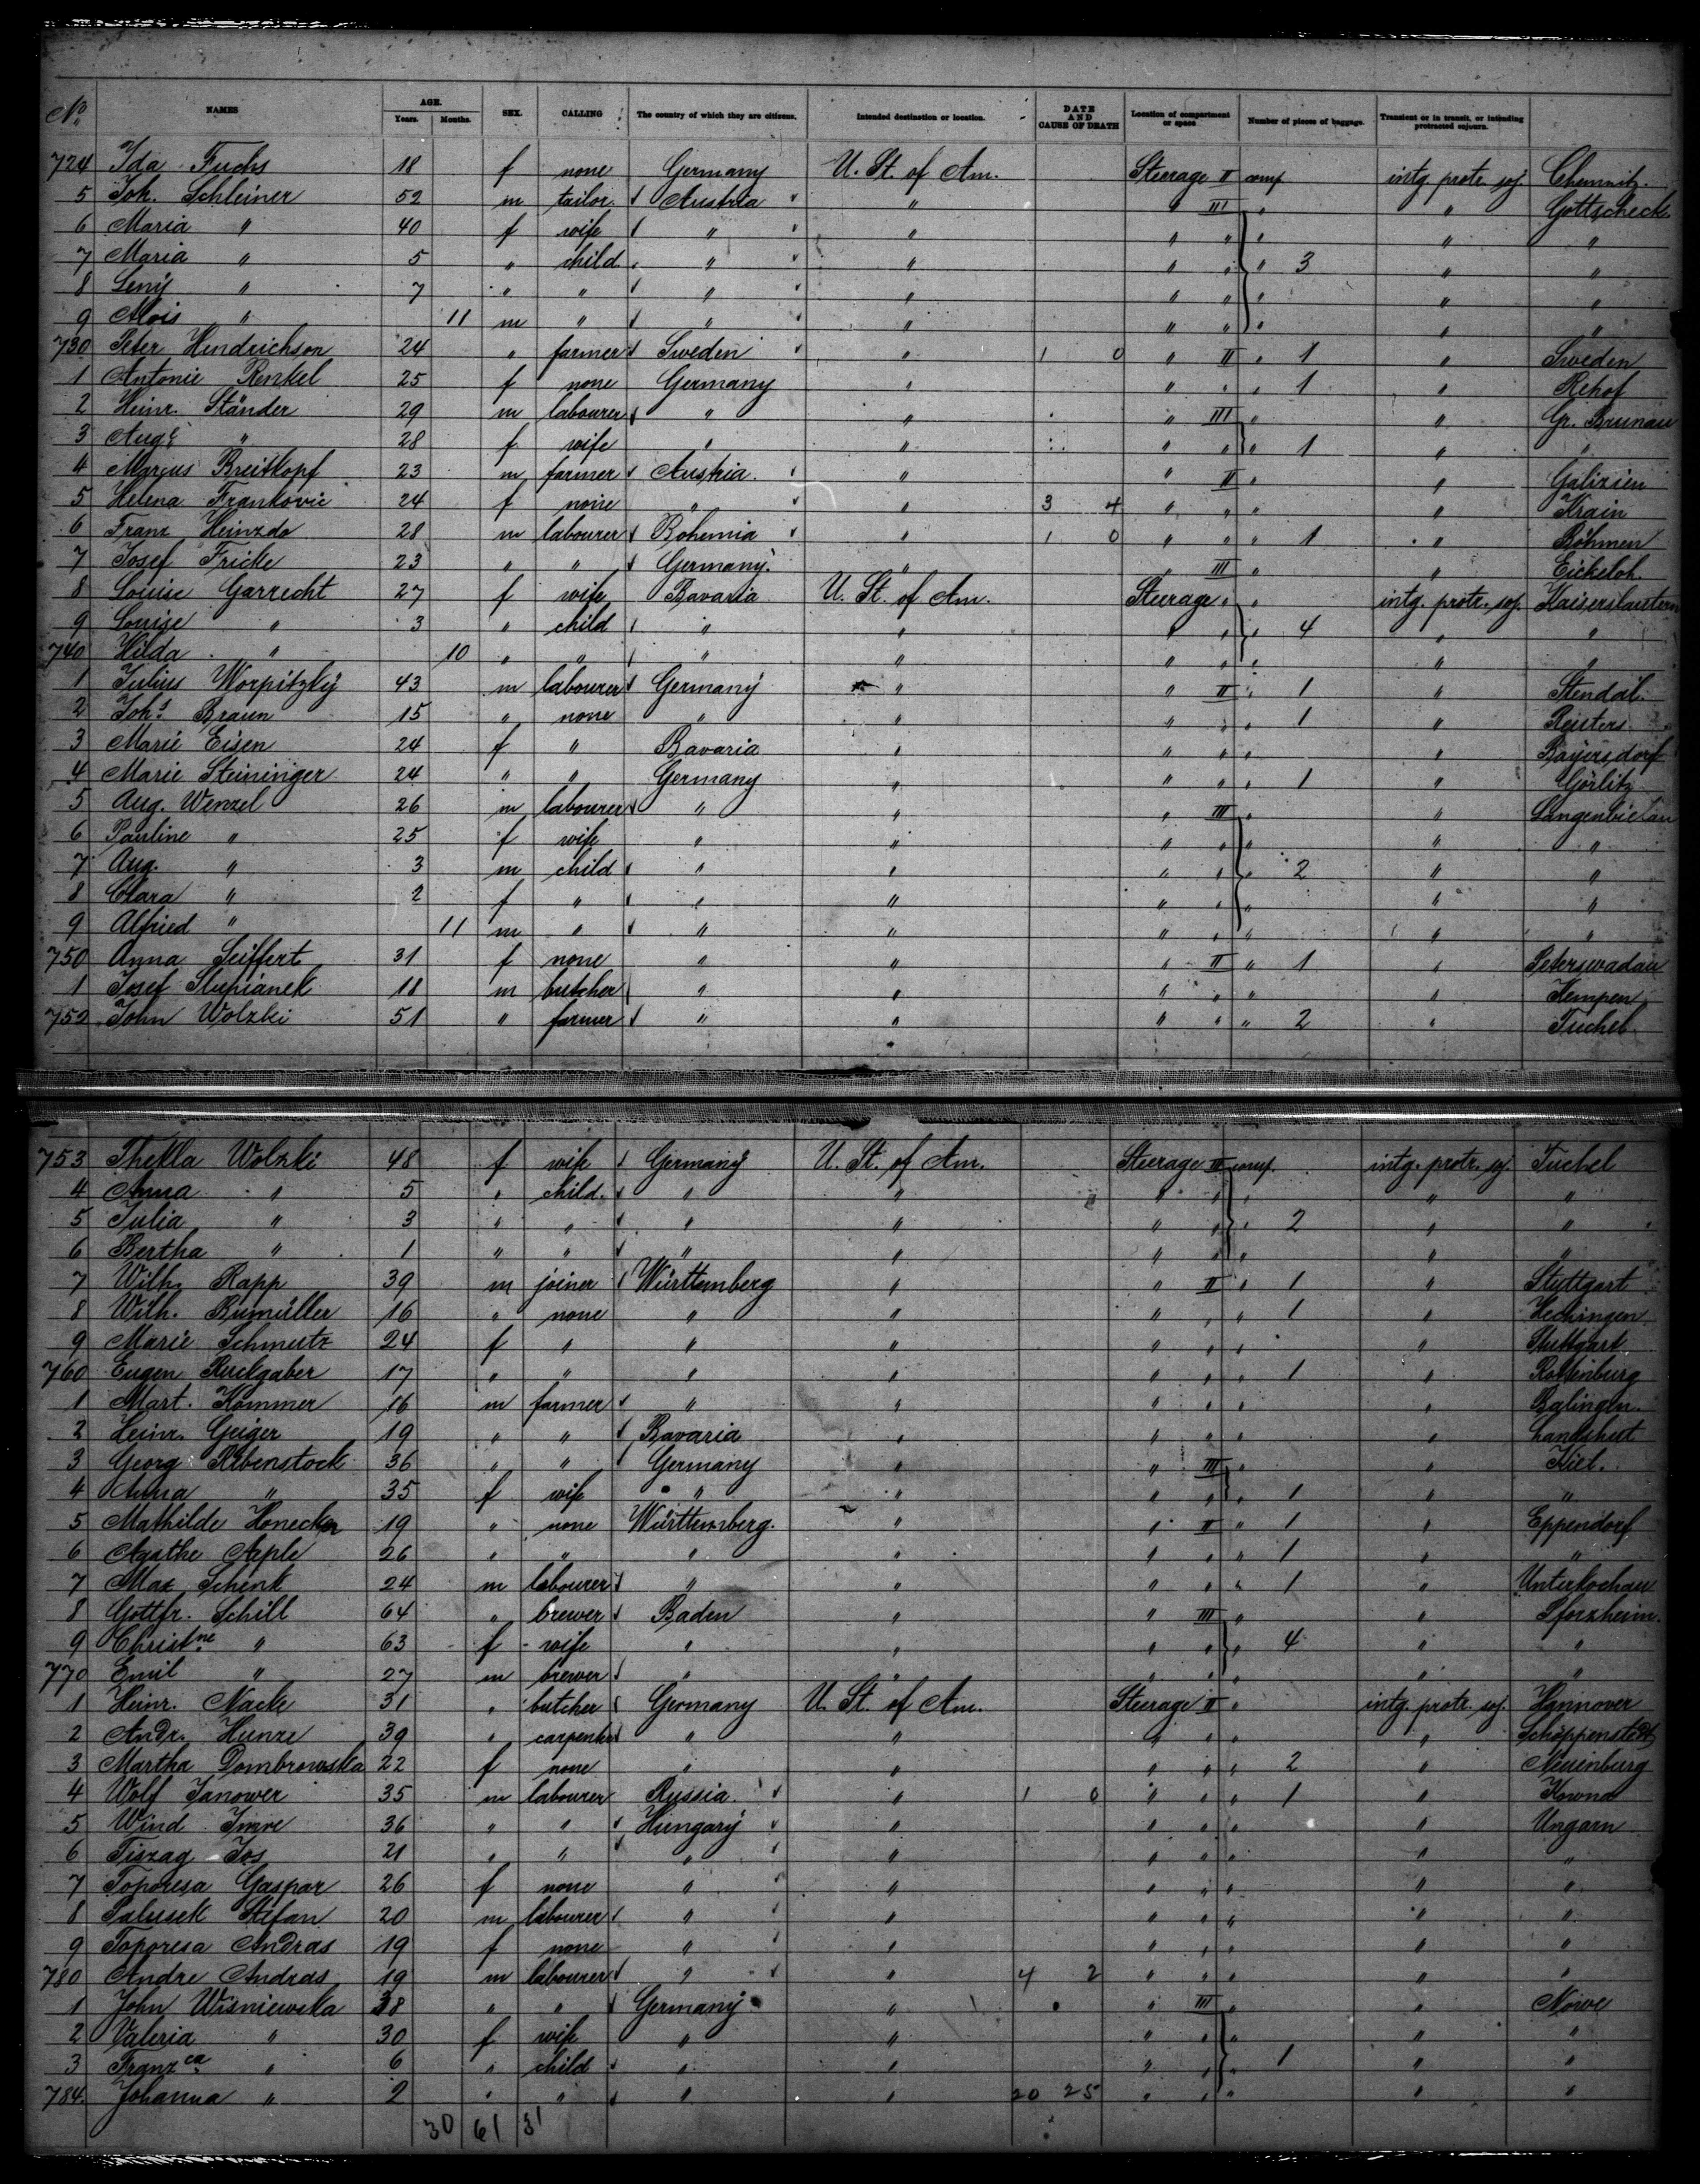 No. NAMES AGE. Years. Months. SEX. CALLING The country of which they are citizens. Intended destination or location. DATE AND CAUSE OF DEATH Location of compartment or space. Number of pieces of baggage. Transient or in transit, or intending protracted sojourn.
724 Ida Fuchs 18 f none Germany U. St. of Am. Steerage II comp intg protr soj. Chemnitz.
5 Joh. Schleiner 52 m tailor. Austria " " III " " Gottscheck
6 Maria " 40 f wife " " " " " " "
7 Maria " 5 " child " " " " " 3 " "
8 Leny " 7 " " " " " " " " "
9 Alois " 11 m " " " " " " " "
730 Peter Hendrichson 24 " farmer Sweden " 1 0 " II " 1 " Sweden
1 Antonie Renkel 25 f none Germany " " " " 1 " Rehof
2 Heinr. Ständer 29 m labourer " " " III " " Gr. Brunau
3 Auge " 28 f wife " " " " " 1 " "
4 Marcus Breitkopf 23 m farmer Austria. " " II " " Galizien
5 Helena Frankovic 24 f none " " 3 4 " " " " Krain
6 Franz Heinzdo 28 m labourer Bohemia " 1 0 " " " 1 " Böhmen
7 Josef Fricke 23 " " Germany. " " III " " Eickeloh.
8 Louise Garrecht 27 f wife Bavaria U. St. of Am. Steerage " " intg. protr. soj. Kaiserslautern
9 Louise " 3 " child " " " " " 4 " "
740 Hilda " 10 " " " " " " " " "
1 Julius Worpitzky 43 m labourer Germany " " II " 1 " Stendal.
2 Johs. Braun 15 " none " " " " " 1 " Reisters
3 Marie Eisen 24 f " Bavaria " " " " " Bayersdorf
4 Marie Steininger 24 " " Germany " " " " 1 " Görlitz
5 Aug. Wenzel 26 m labourer " " " III " " Langenbielau
6 Pauline " 25 f wife " " " " " " "
7 Aug. " 3 m child " " " " " 2 " "
8 Clara " 2 f " " " " " " " "
9 Alfried " 11 m " " " " " " " "
750 Anna Seiffert 31 f none " " " II " 1 " Peterswadau
1 Josef Slupianek 18 m butcher " " " " " " Kempen
752 John Wolzki 51 " farmer " " " " " 2 " Tuchel
753 Thekla Wolzki 48 f wife Germany U. St. of Am. Steerage III comp. intg. protr. soj Tuchel
4 Anna " 5 " child. " " " " " " "
5 Julia " 3 " " " " " " " 2 " "
6 Bertha " 1 " " " " " " " " "
7 Wilh. Rapp 39 m joiner Württemberg " " II " 1 " Stuttgart
8 Wilh. Bumüller 16 " none " " " " " 1 " Hechingen
9 Marie Schmutz 24 f " " " " " " " Stuttgart
760 Eugen Ruckgaber 17 " " " " " " " 1 " Rottenburg
1 Mart. Kommer 16 m farmer " " " " " " Balingen.
2 Heinr. Geiger 19 " " Bavaria " " " " " Landshut
3 Georg Rebenstock 36 " " Germany " " III " " Kiel.
4 Anna " 35 f wife " " " " " 1 " "
5 Mathilde Honecker 19 " none Württemberg. " " II " 1 " Eppendorf
6 Agathe Aeple 26 " " " " " " " 1 " "
7 Max Schenk 24 m labourer " " " " " 1 " Unterkochau
8 Gottfr. Schill 64 " brewer Baden " " III " " Pforzheim.
9 Christne " 63 f wife " " " " " 4 " "
770 Emil " 27 m brewer " " " " " " "
1 Heinr. Nacke 31 " butcher Germany U. St. of Am. Steerage II " intg. protr. soj. Hannover
2 Andr. Hunze 39 " carpenter " " " " " " Schöppenstedt
3 Martha Dombrowska 22 f none " " " " " 2 " Neuenburg
4 Wolf Janower 35 m labourer Russia. " 1 0 " " " 1 " Kowna
5 Wind Imre 36 " " Hungary " " " " " Ungarn
6 Tiszag Jos 21 " " " " " " " " "
7 Toporesa Gaspar 26 f none " " " " " " "
8 Palusek Stefan 20 m labourer " " " " " " "
9 Toporesa Andras 19 f none " " " " " " "
780 Andre Andras 19 m labourer " " 4 2 " " " " "
1 John Wisniewska 38 " " Germany " " III " " Nowe
2 Valeria " 30 f wife " " " " " " "
3 Franzca " 6 " child " " " " 1 " "
784. Johanna " 2 " " " " 20 25 " " " " "
30 61 31